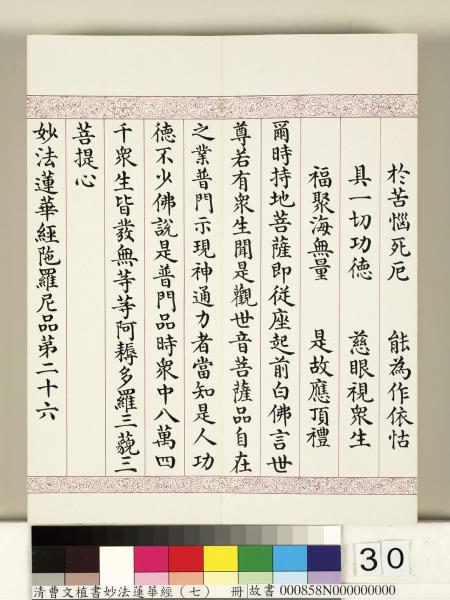 於苦惱死厄　能為作依怙
具一切功德　慈眼視衆生
福聚海無量　是故應頂禮
爾時持地菩薩即從座起前白佛言世
尊若有衆生聞是觀世音菩薩品自在
之業普門示現神通力者當知是人功
德不少佛說是普門品時衆中八萬四
千衆生皆發無等等阿耨多羅三藐三
菩提心
妙法蓮華經陁羅尼品第二十六
30
清曹文植書妙法蓮華經（七）　冊 故書 000858N000000000